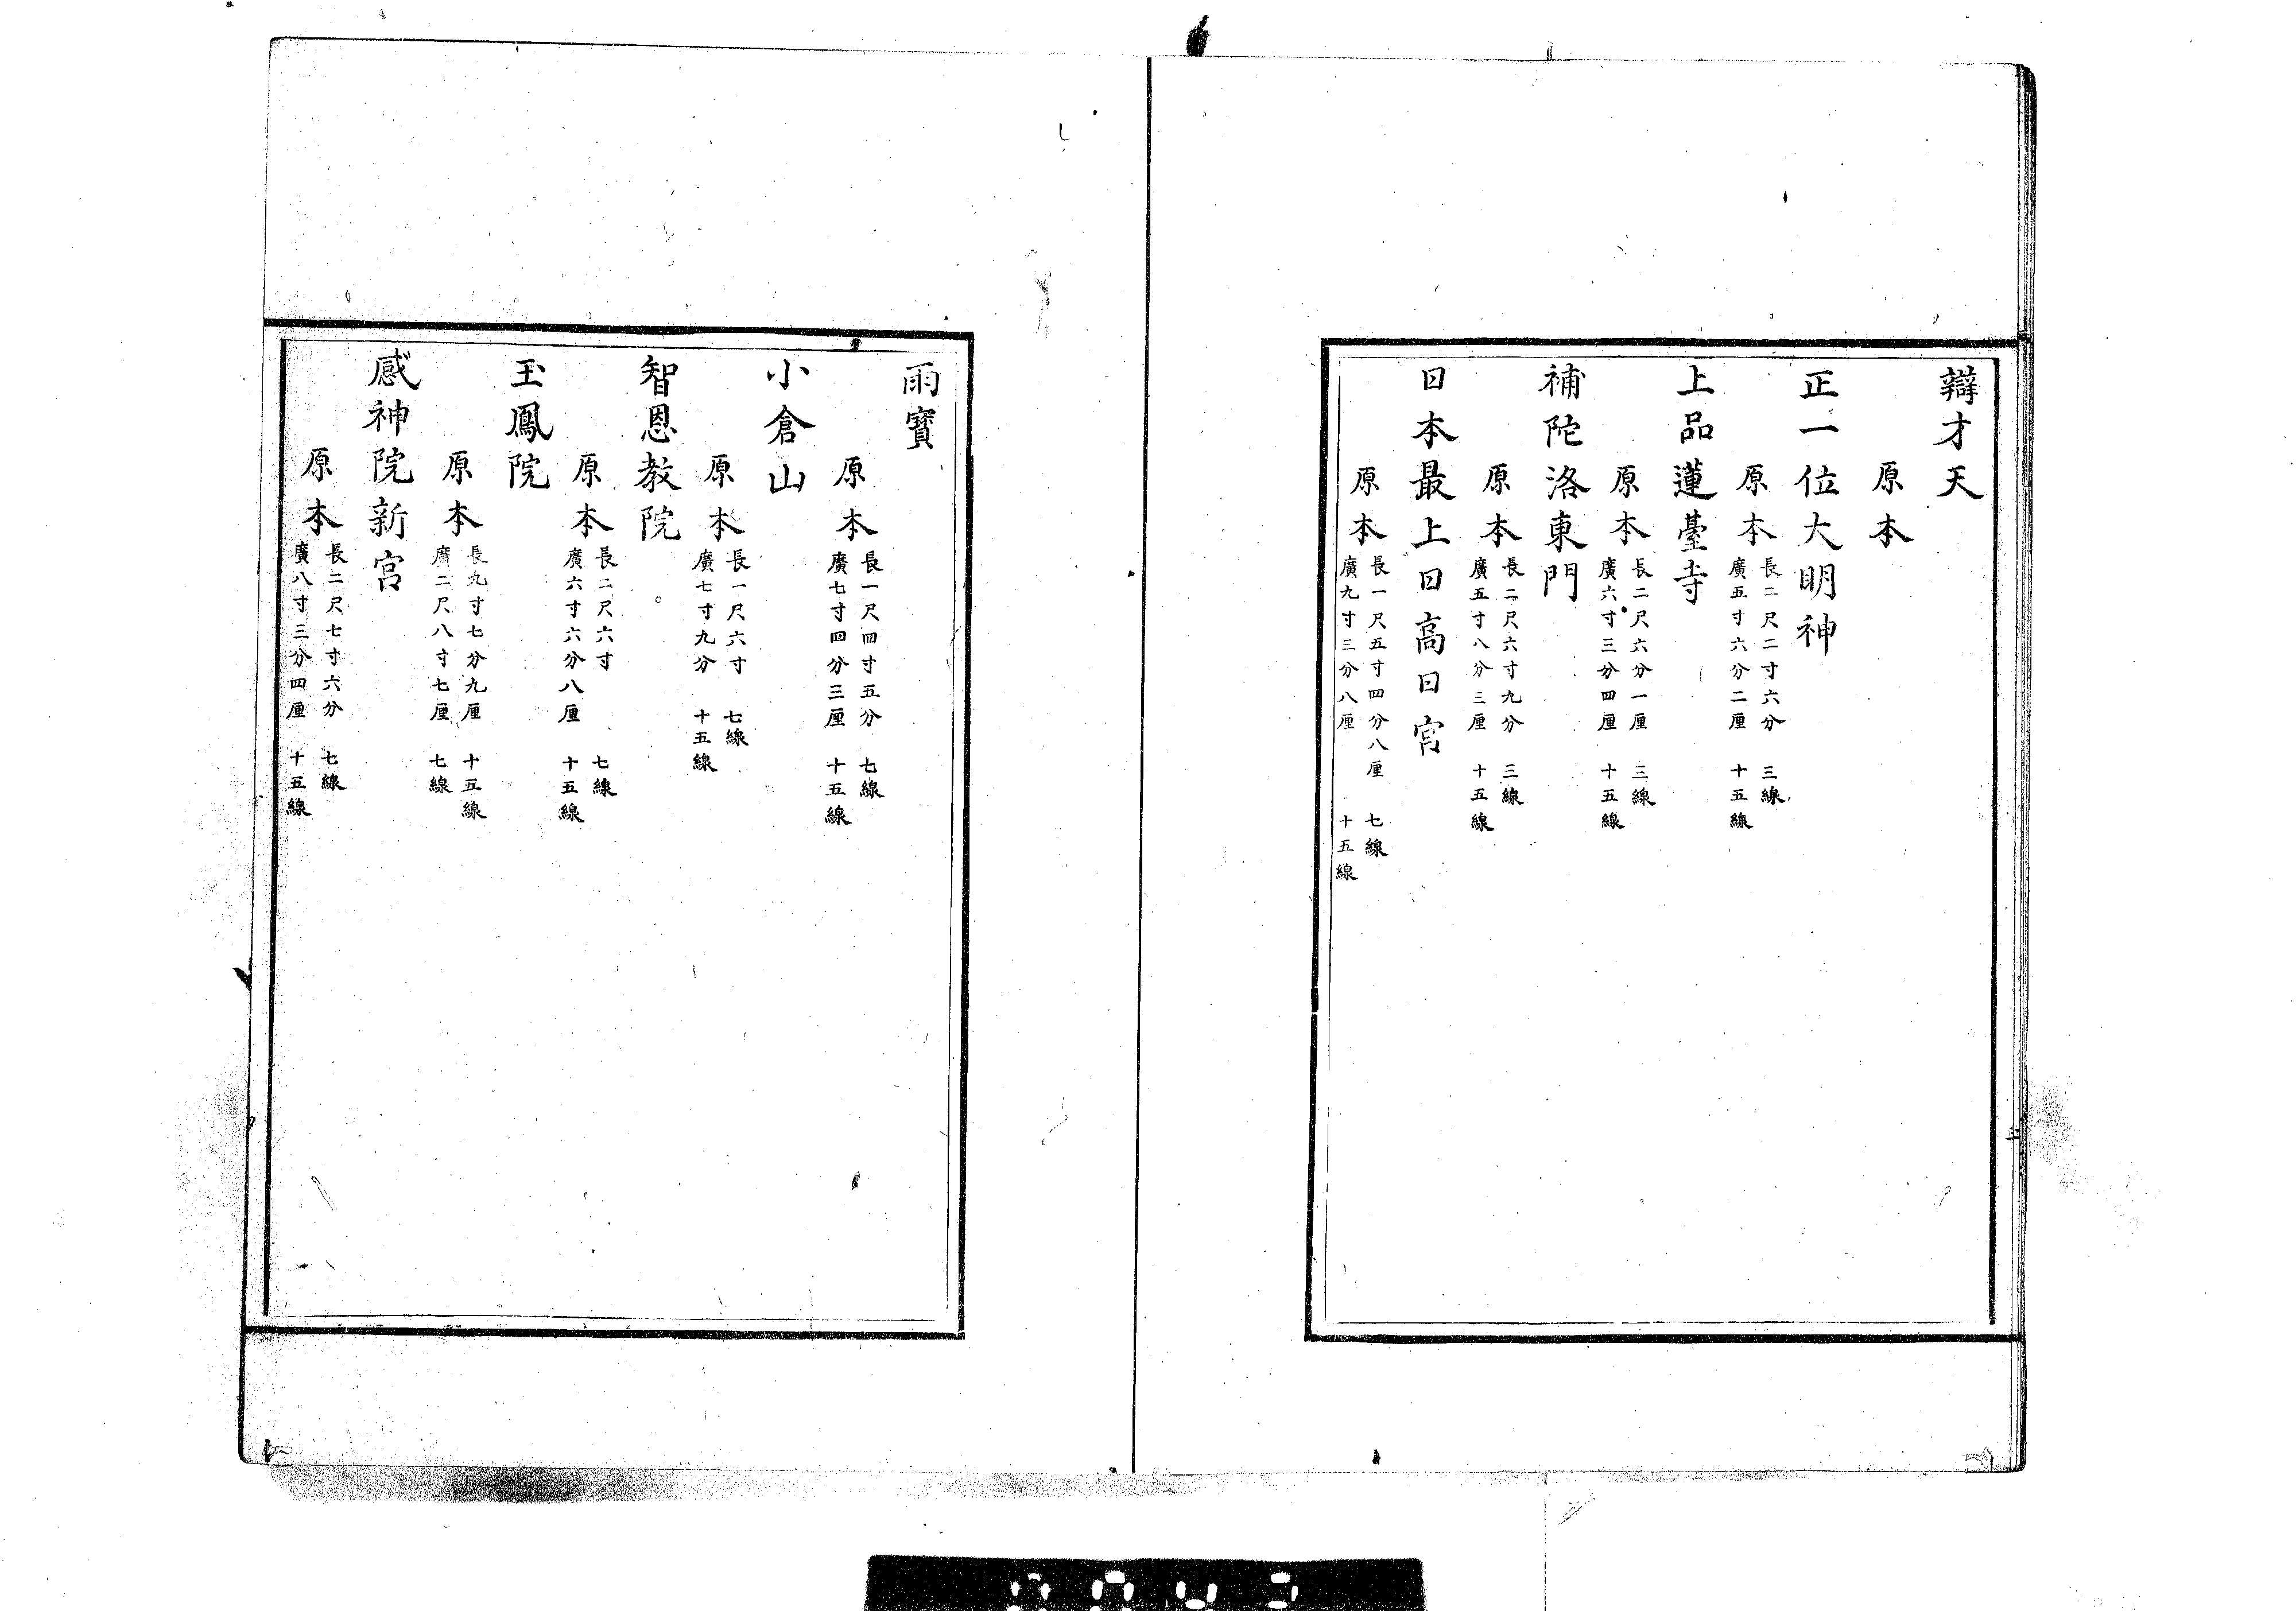 辯才天
原本
正一位大明神
原本 長二尺二寸六分 三線
廣五寸六分二厘 十五線
上品蓮臺寺
原本 長二尺六分一厘 三線
廣六寸三分四厘 十五線
補陀洛東門
原本 長二尺六寸九分 三線
廣五寸八分三厘 十五線
日本最上日高日宮
原本 長一尺五寸四分八厘 七線
廣九寸三分八厘 十五線
雨寶
原本 長一尺四寸五分 七線
廣七寸四分三厘 十五線
小倉山
原本 長一尺六寸 七線
廣七寸九分 十五線
智恩教院
原本 長二尺六寸 七線
廣六寸六分八厘 十五線
玉鳳院
原本 長九寸七分九厘 十五線
廣二尺八寸七厘 七線
感神院新宮
原本 長二尺七寸六分 七線
廣八寸三分四厘 十五線